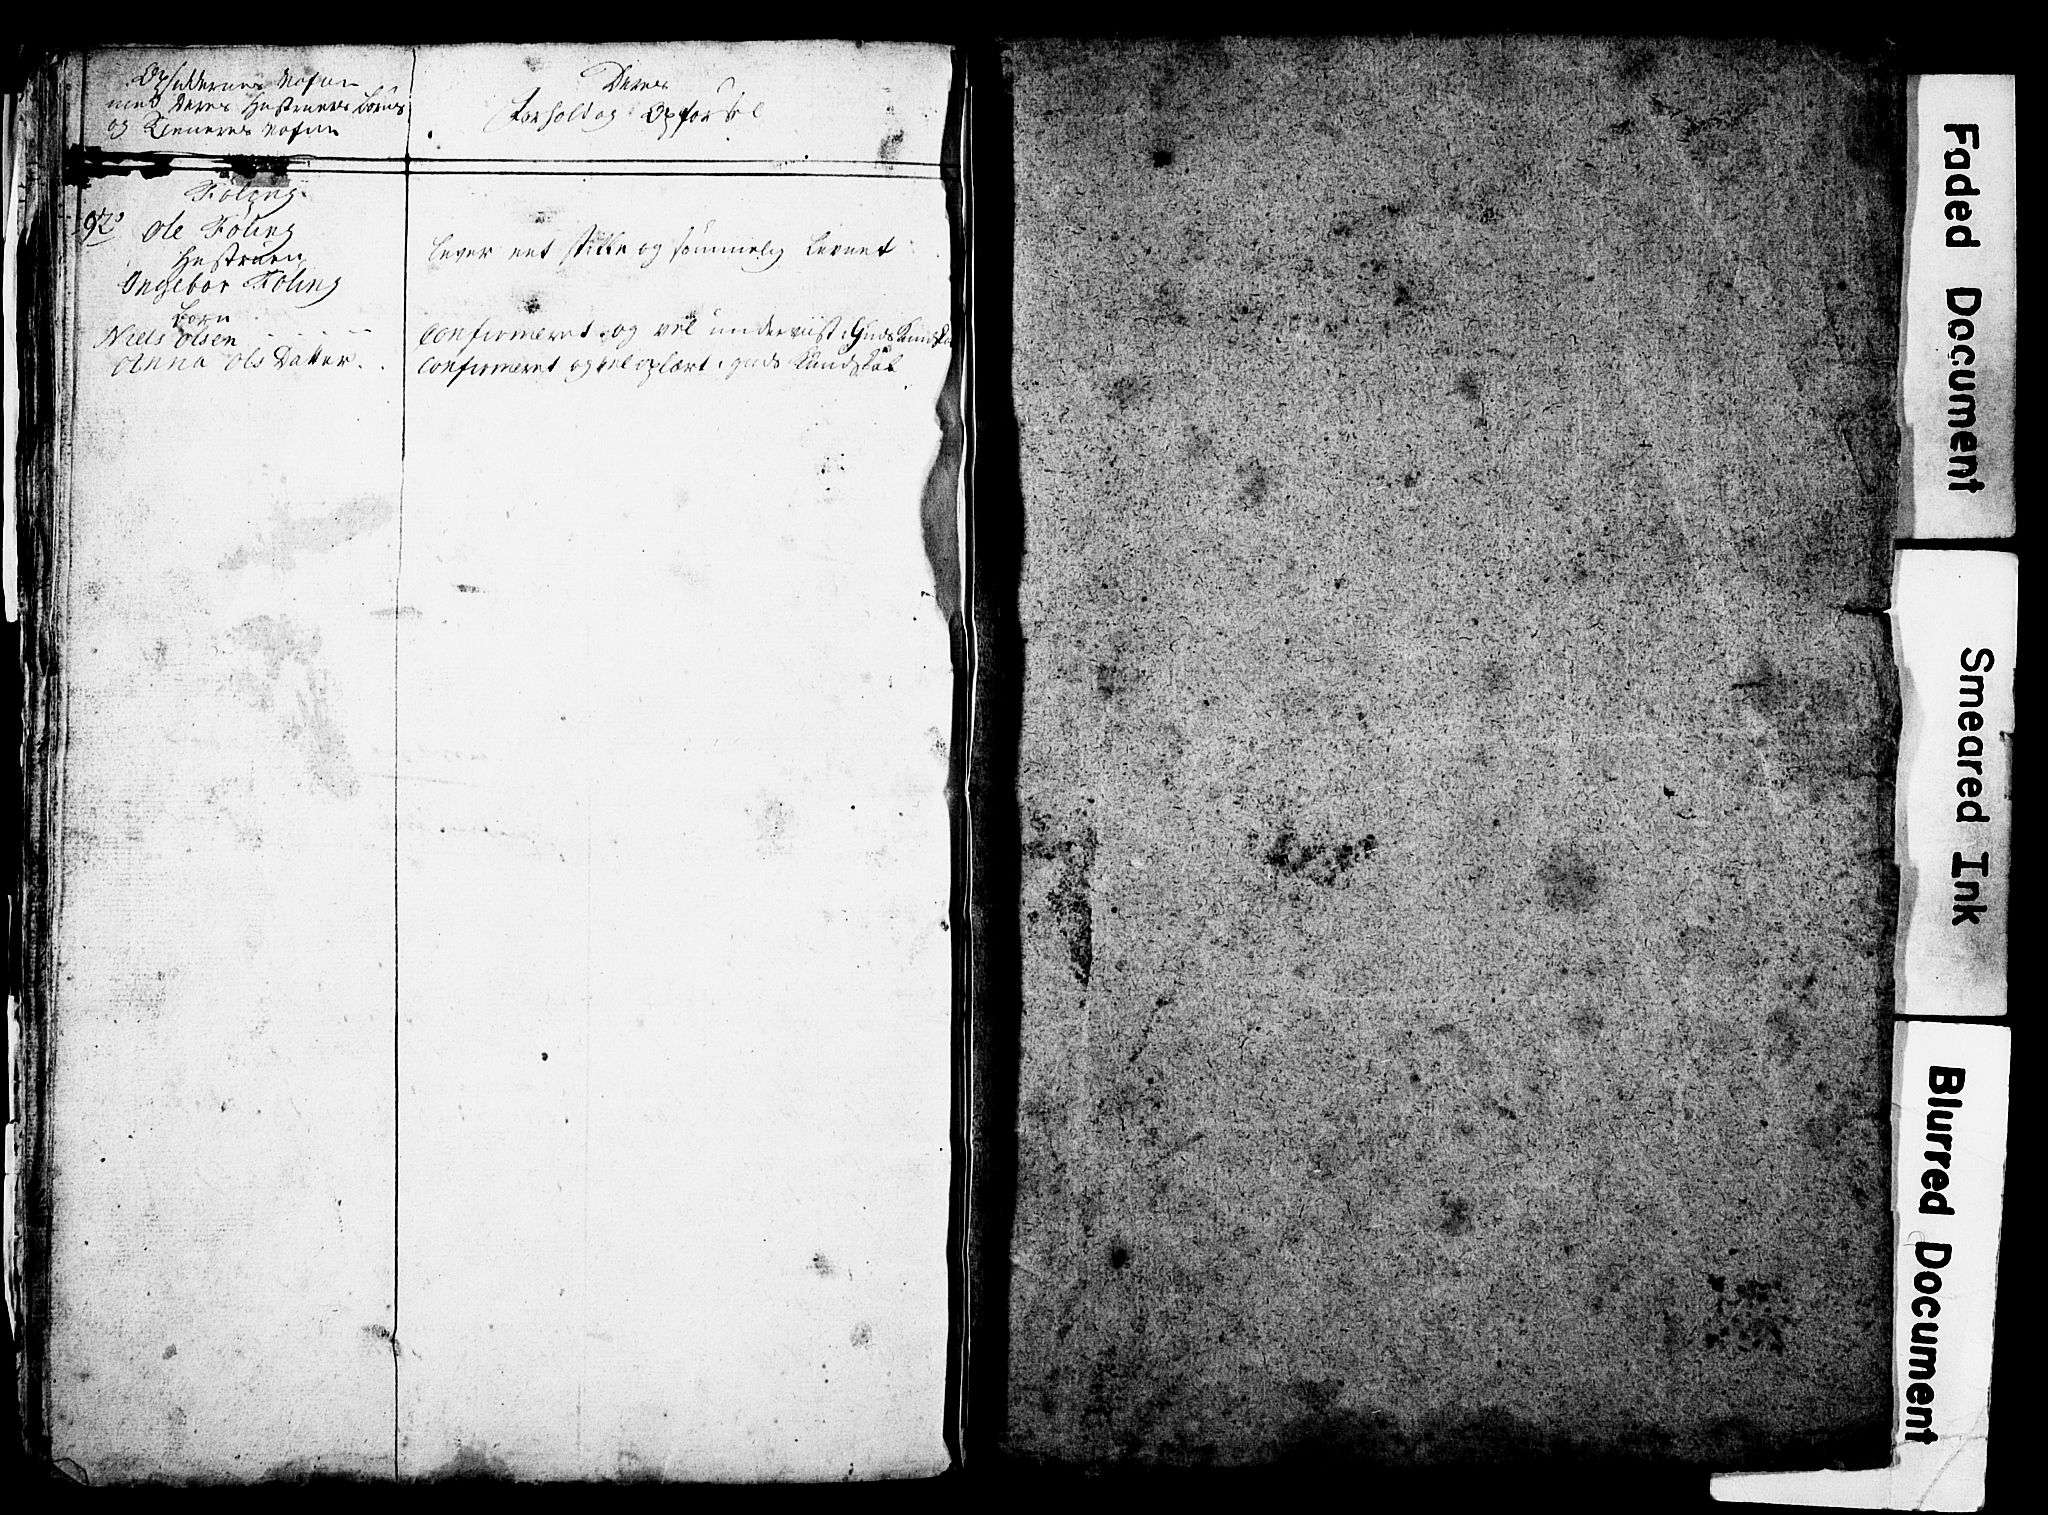 Opsiddernes Nafne
med Deres Hustruers Børns
og Tieneres Nafne
Deres
Forhold og Opførsel
Foling
92
Ole Foling
Hustruen
Ingebor Foling
Børn
Niels Olsen
Anna Ols Datter
lever eet stille og sømmelig levnet
confirmeret og vel underviist i Guds Kundska
confirmeret og vel oplært i guds Kundskab
Faded Document
Smeared Ink
Blurred Document